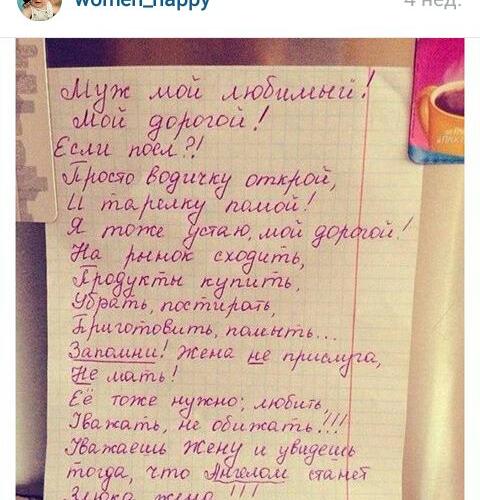 women_happy
4 нед.
Муж мой любимый!
Мой дорогой!
Если поел?!
Просто водичку открой,
И тарелку помой!
Я тоже устаю, мой дорогой!
На рынок сходить,
Продукты купить,
Убрать, постирать,
Приготовить, помыть...
Запомни! Жена не прислуга,
Не мать!
Её тоже нужно; любить,
Уважать, не обижать!!!
Уважаешь жену и увидешь
тогда, что Ангелом станет
Злюка жена!!!